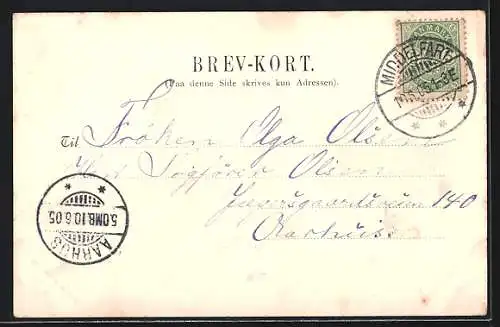 BREV-KORT.
(Paa denne Side skrives kun Adressen).
DANMARK
MIDDELFART
Til Frøken Olga Olsen
Olsen
140
Aarhus
5.OMB. 10.6.05
AARHUS